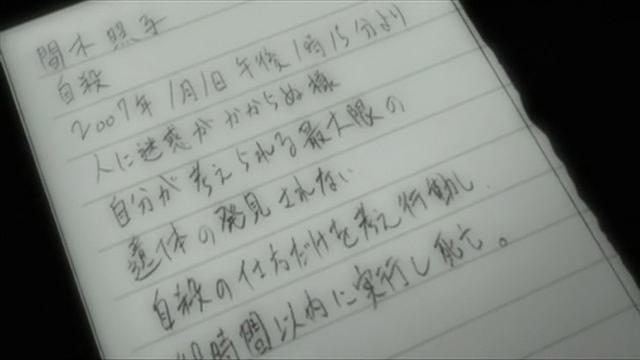 間木照子
自殺
2007年1月1日午後1時15分より
人に迷惑がかからぬ様
自分が考えられる最大限の
遺体の発見されない
自殺の仕方だけを考え行動し
時間以内に実行し死亡。